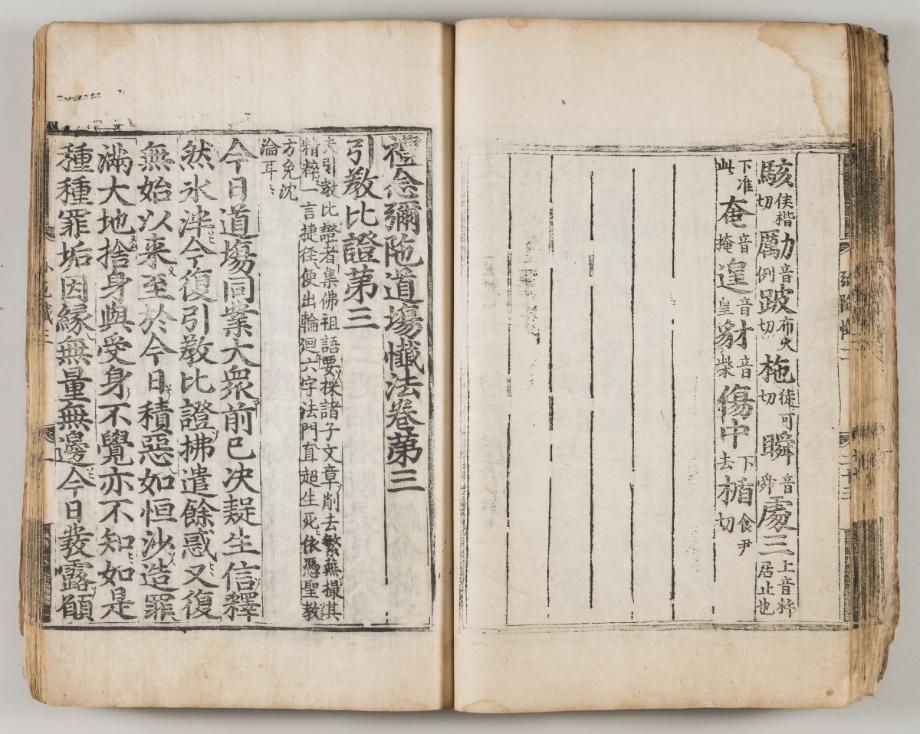 駭侯楷切勵音例跛布火切柂徒可切瞬音舜處三上音杵居止也
下准此奄音掩遑音皇豺音柴傷中下去楯食尹切
禮念彌陁道塲懺法卷苐三
引教比證苐三
夫引教比證者集佛祖語要採諸子文章削去繁蕪撮其
精粹一言捷徑便出輪廻六字法門直超生死依憑聖教
方免沈
淪耳
今日道塲同業大衆前已决疑生信釋
然氷泮今復引教比證拂遣餘惑又復
無始以来至於今日積惡如恒沙造罪
滿大地捨身與受身不覺亦不知如是
種種罪垢因縁無量無邊今日發露願